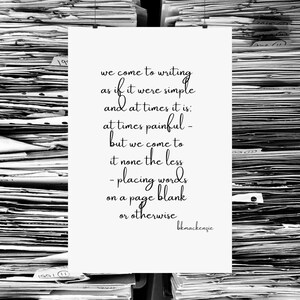 we come to writing
as if it were simple
and at times it is;
at times painful -
but we come to
it none the less
- placing words
on a page blank
or otherwise
bkmackenzie